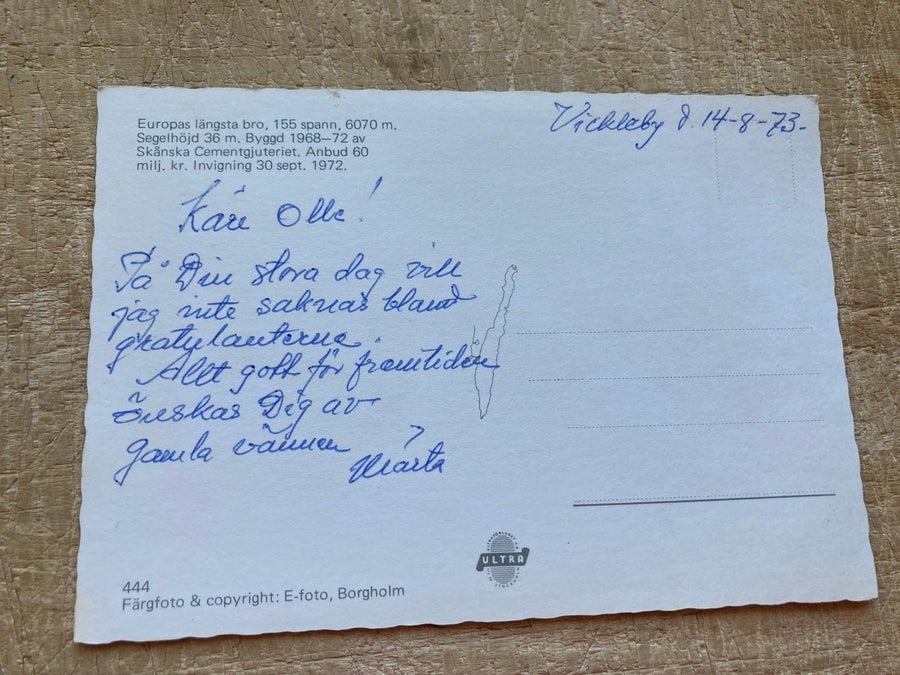 Europas längsta bro, 155 spann, 6070 m.
Segelhöjd 36 m. Byggd 1968–72 av
Skånska Cementgjuteriet. Anbud 60
milj. kr. Invigning 30 sept. 1972.
Vickleby d. 14-8-73.
Käre Olle!
På Din stora dag vill
jag inte saknas bland
gratulanterna.
Allt gott för framtiden
önskas Dig av
gamla vännen
Märta
ULTRA
444
Färgfoto & copyright: E-foto, Borgholm